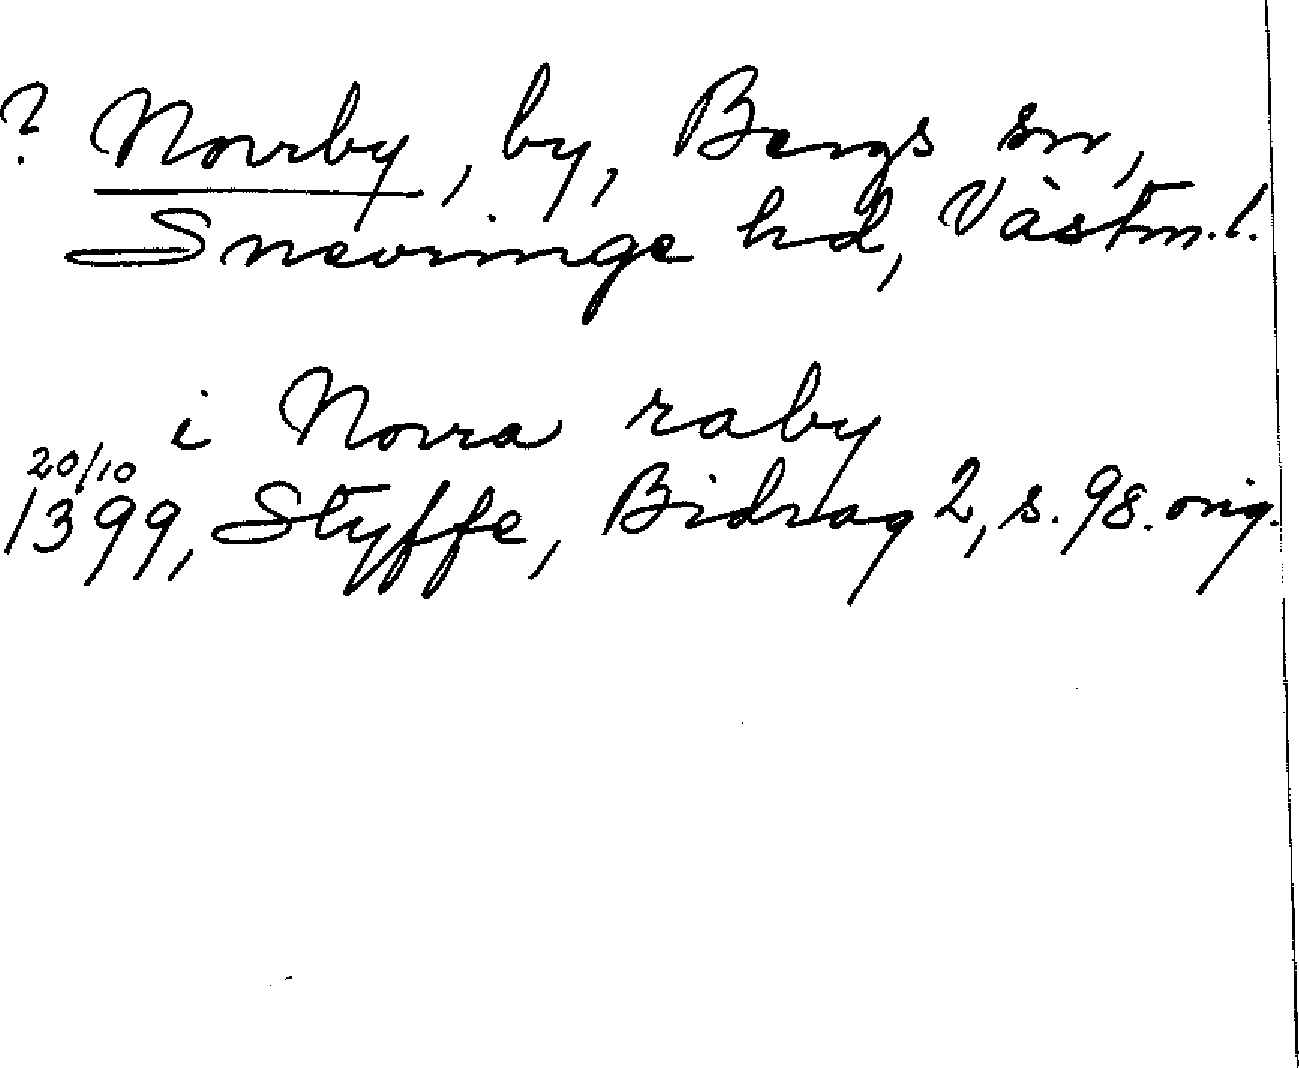 ? Norrby, by, Bergs sn,
Snevringe hd, Västm.l.
i Norra raby
20/10
1399, Styffe, Bidrag 2, s. 98. orig.